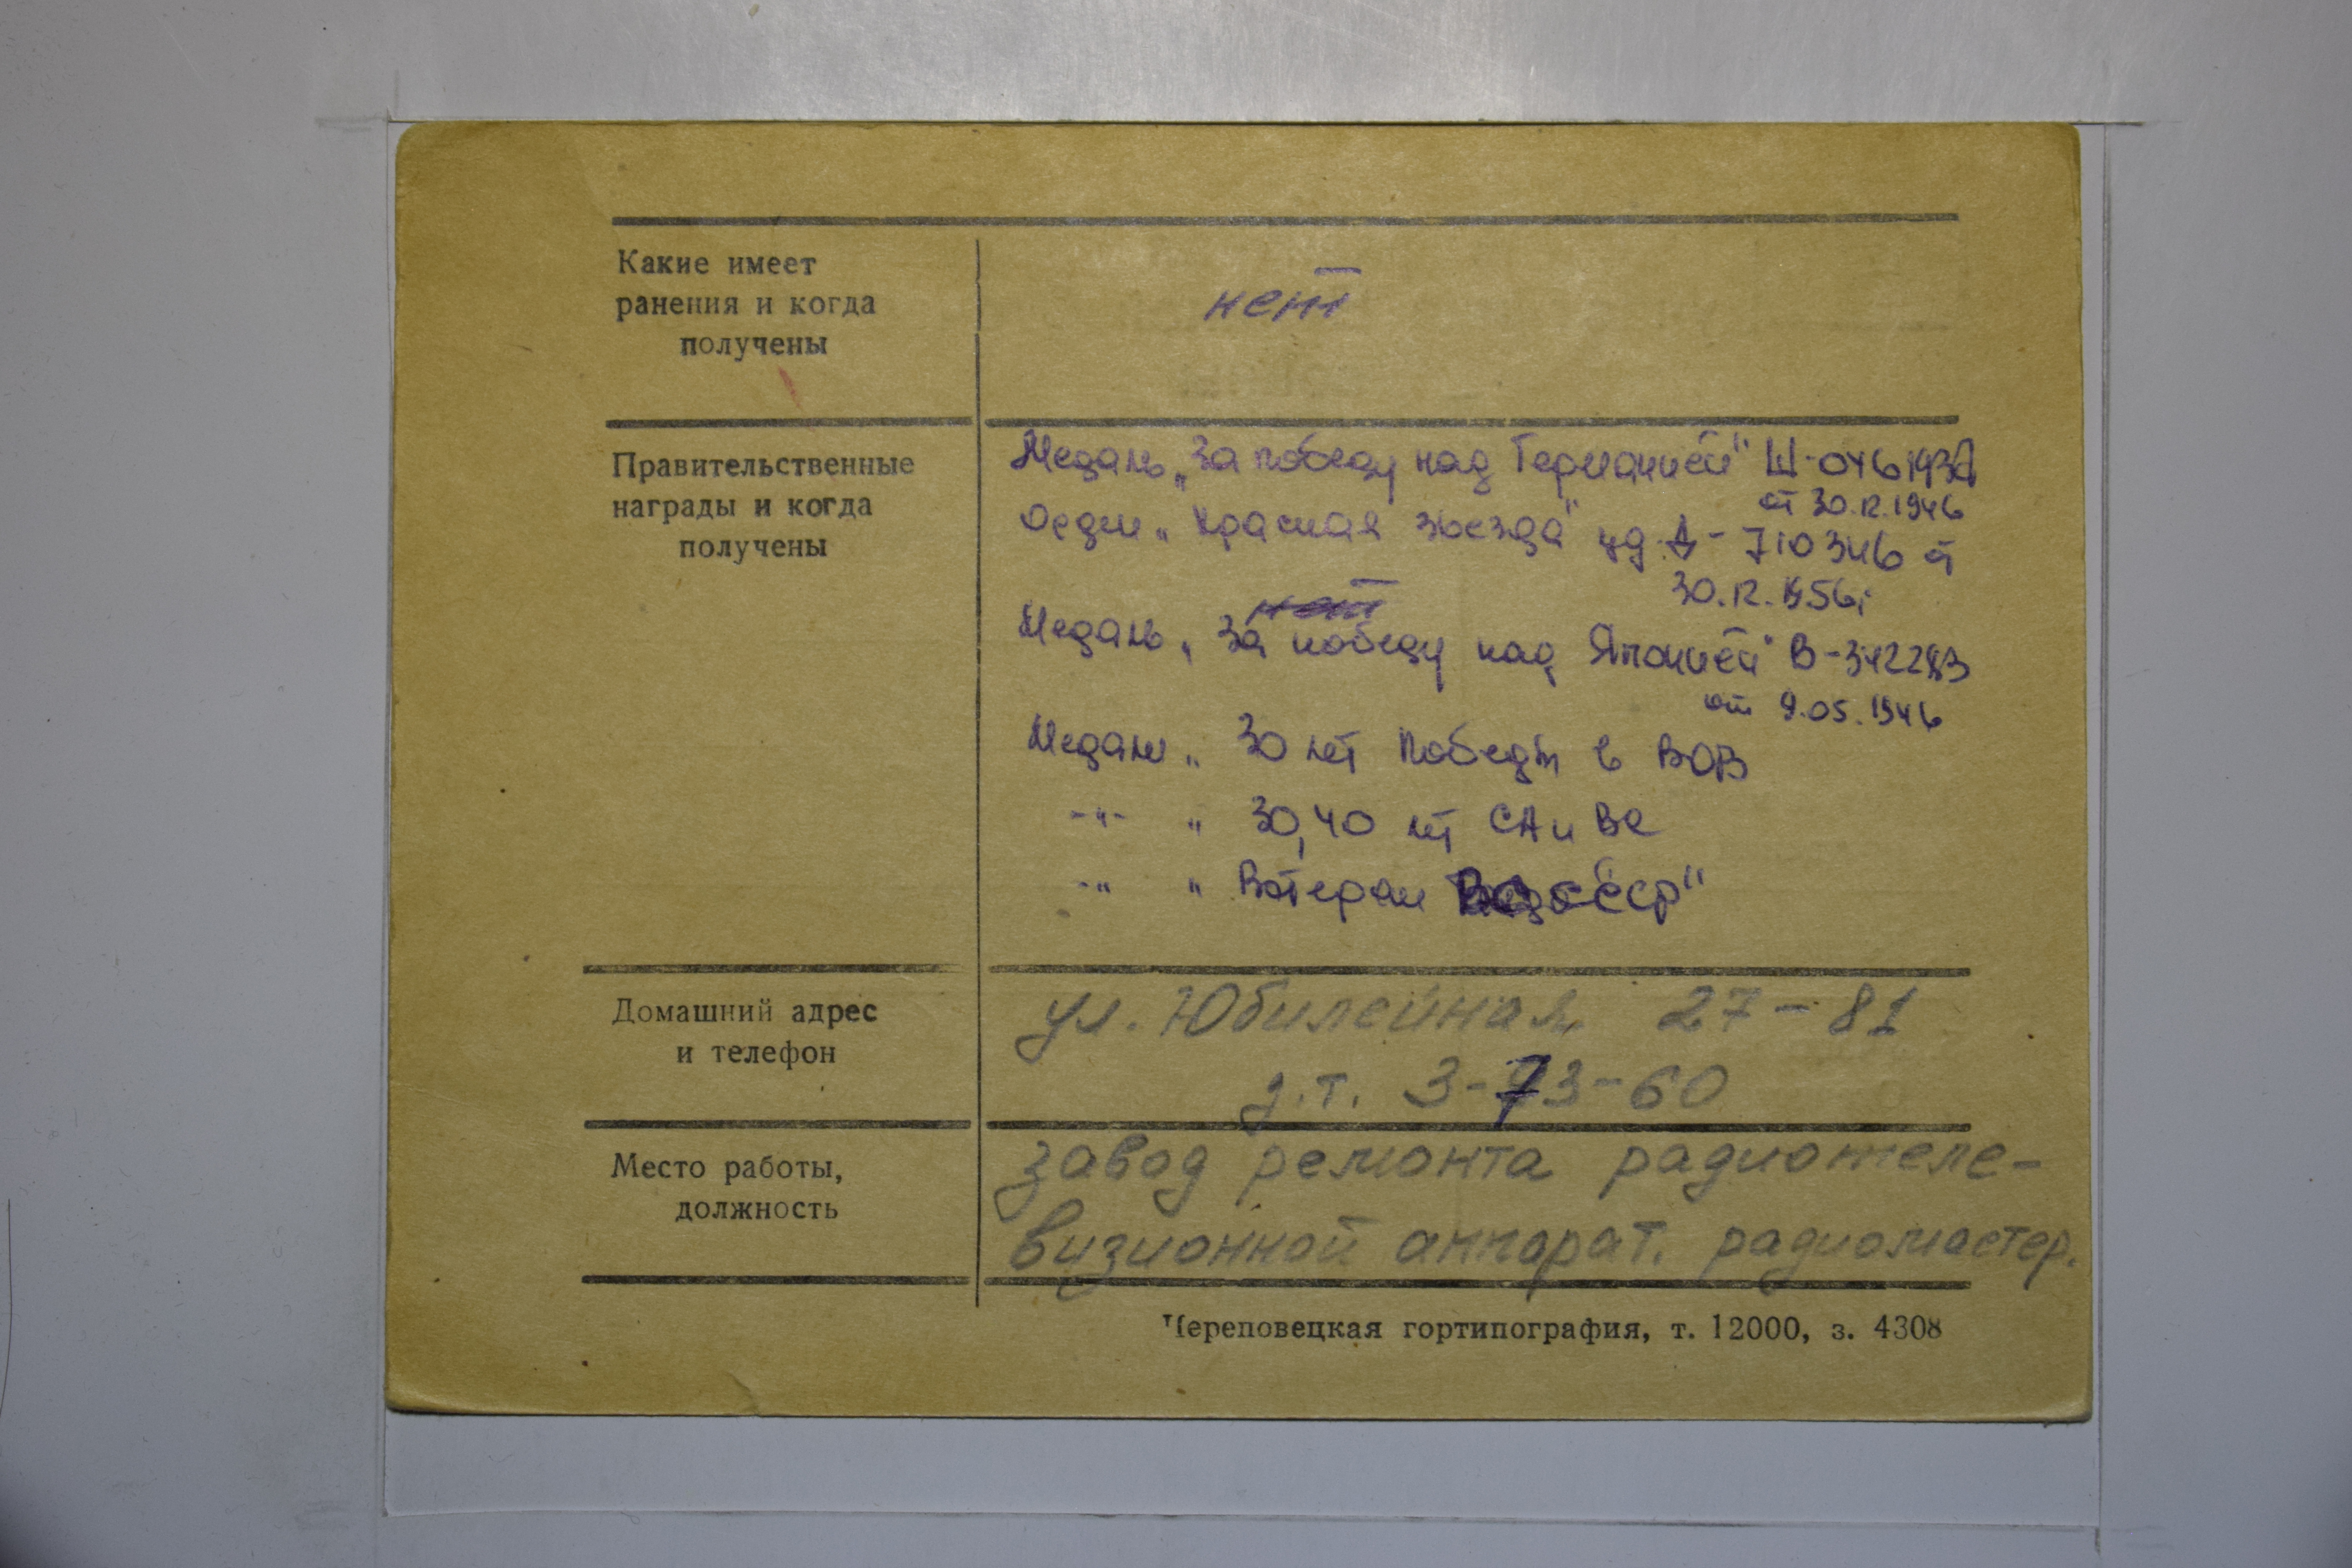 Какие имеет
ранения и когда
получены
нет
Правительственные
награды и когда
получены
Медаль „За победу над Германией" Ш-0461937
от 30.12.1946
Орден „Красная звезда" уд. А-710346 от
30.12.1956г
нет
Медаль „За победу над Японией" В-342283
от 9.05.1946
Медаль „30 лет Победы в ВОВ
-"- „ 30,40 лет СА и ВС
-"- „ Ветеран СССР"
Домашний адрес
и телефон
ул. Юбилейная 27-81
д.т. 3-73-60
Место работы,
должность
завод ремонта радиотеле-
визионной аппарат. радиомастер.
Череповецкая гортипография, т. 12000, з. 4308